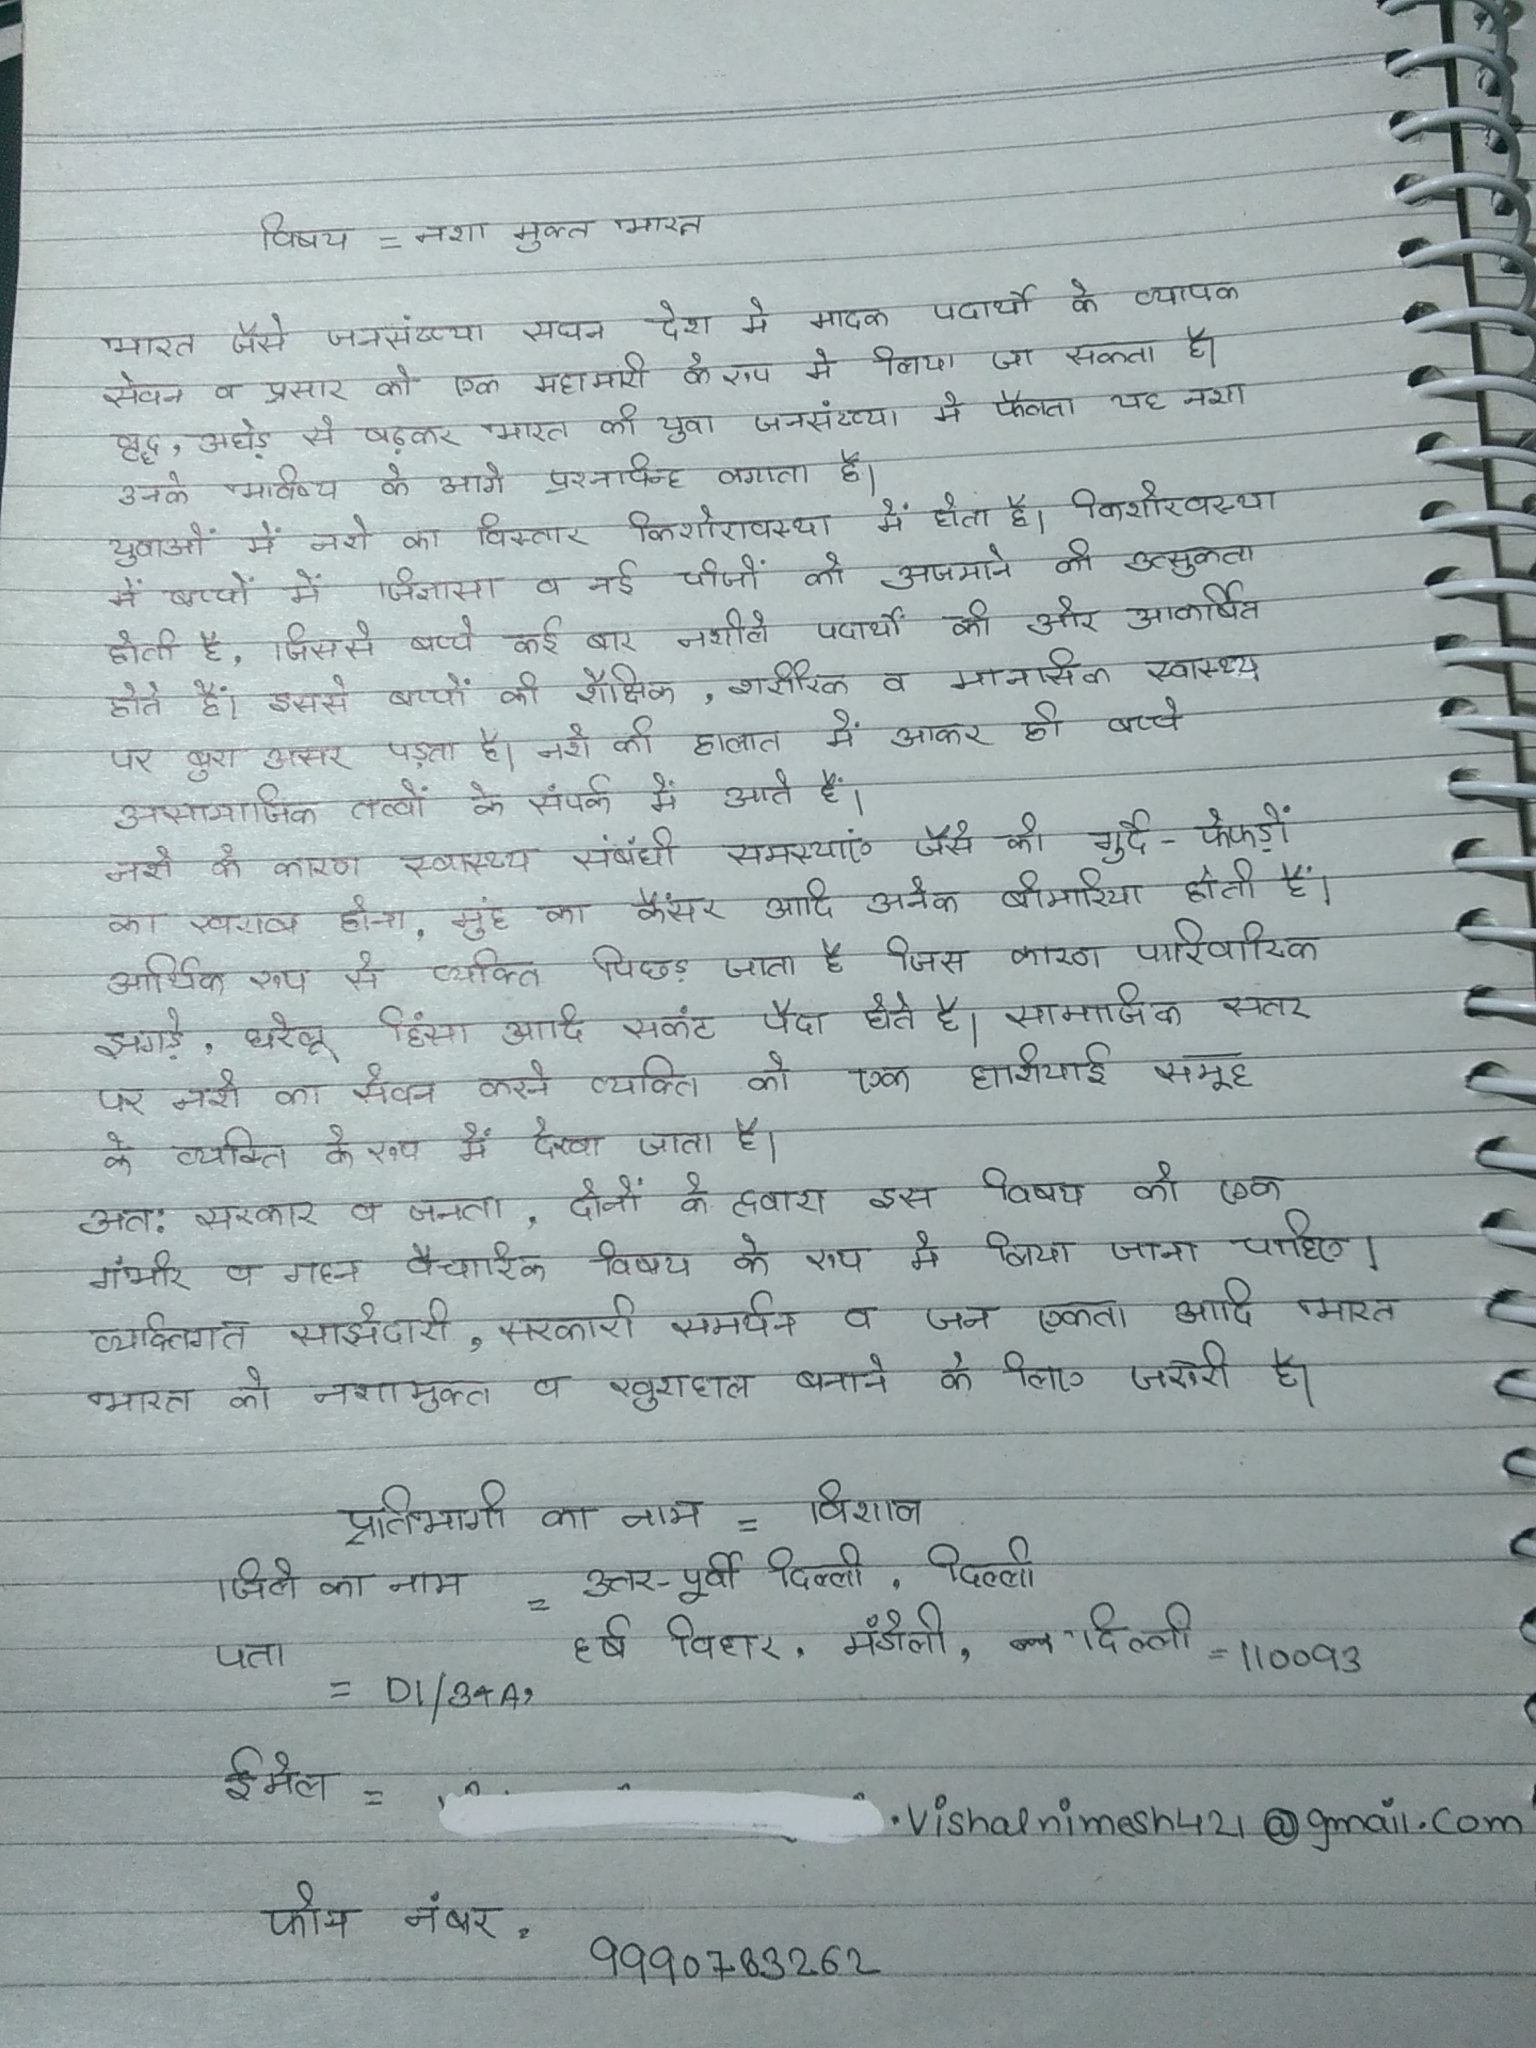 विषय = नशा मुक्त भारत
भारत जैसे जनसंख्या सघन देश मे मादक पदार्थो के व्यापक
सेवन व प्रसार को एक महामारी के रूप मे लिया जा सकता है।
वृद्ध, अधेड़ से बढ़कर भारत की युवा जनसंख्या मे फैलता यह नशा
उनके भविष्य के आगे प्रश्नचिन्ह लगाता है।
युवाओं में नशे का विस्तार किशोरावस्था में होता है। किशोरवस्था
में बच्चों में जिज्ञासा व नई चीजों को अजमाने की उत्सुकता
होती है, जिससे बच्चे कई बार नशीले पदार्थों की और आकर्षित
होते हैं। इससे बच्चों की शैक्षिक, शरीरिक व मानसिक स्वास्थ्य
पर बुरा असर पड़ता है। नशे की हालात में आकर ही बच्चे
असामाजिक तत्वों के संपर्क में आते हैं।
नशे के कारण स्वास्थ्य संबंधी समस्याएं जैसे की गुर्दे - फेफड़ों
का खराब होना, मुंह का कैंसर आदि अनेक बीमारिया होती हैं।
आर्थिक रूप से व्यक्ति पिछड़ जाता है जिस कारण पारिवारिक
झगड़े, घरेलू हिंसा आदि सकंट पैदा होते है। सामाजिक सतर
पर नशे का सेवन करने व्यक्ति को एक हाशियाई समूह
के व्यक्ति के रूप में देखा जाता है।
अत: सरकार व जनता, दोनों के द्वारा इस विषय को एक
गंभीर व गहन वैचारिक विषय के रूप मे लिया जाना चाहिए।
व्यक्तिगत साझेदारी, सरकारी समर्थन व जन एकता आदि भारत
भारत को नशामुक्त व खुशहाल बनाने के लिए जरूरी है।
प्रतिभागी का नाम = विशाल
जिले का नाम = उत्तर-पूर्वी दिल्ली, दिल्ली
पता = D1/34A, हर्ष विहार, मंडोली, दिल्ली = 110093
ईमेल = .vishalnimesh421@gmail.com
फोन नंबर = 9990783262